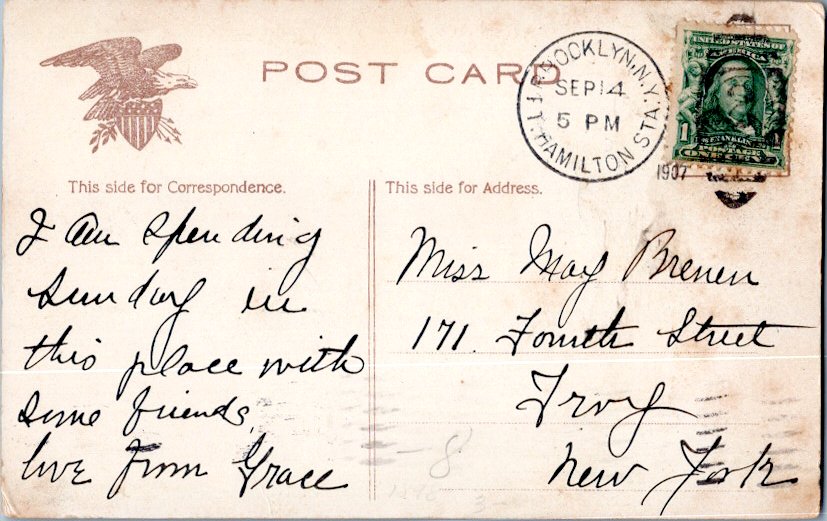 POST CARD
BROOKLYN, N.Y.
SEP 14
5 PM
1907
FT. HAMILTON STA.
UNITED STATES OF
AMERICA
1
FRANKLIN
POSTAGE
ONE
This side for Correspondence.
I am spending
Sunday in
this place with
some friends
love from Grace
This side for Address.
Miss May Brenen
171. Fourth Street
Troy
New York
8